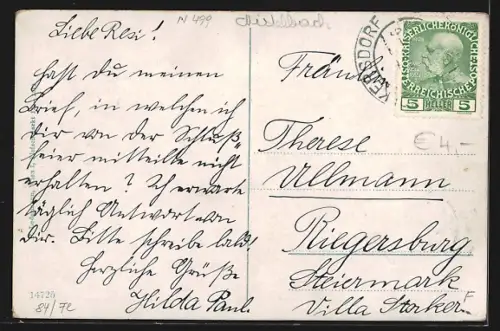 N 499
Liebe Resi!
hast Du meinen
Brief, in welchen ich
dir von der Schluß
feier mitteilte nicht
erhalten? Ich erwarte
täglich Antwort von
dir. Bitte schreibe bald!
Herzliche Grüße
Hilda Paul.
14724
84/72
KERSDORF
KAISERLICHE KÖNIGLICHE
ÖSTERREICHISCHE POST
5 HELLER 5
€4,-
Fräulein
Therese
Ullmann
Riegersburg
Steiermark
Villa Storker
F